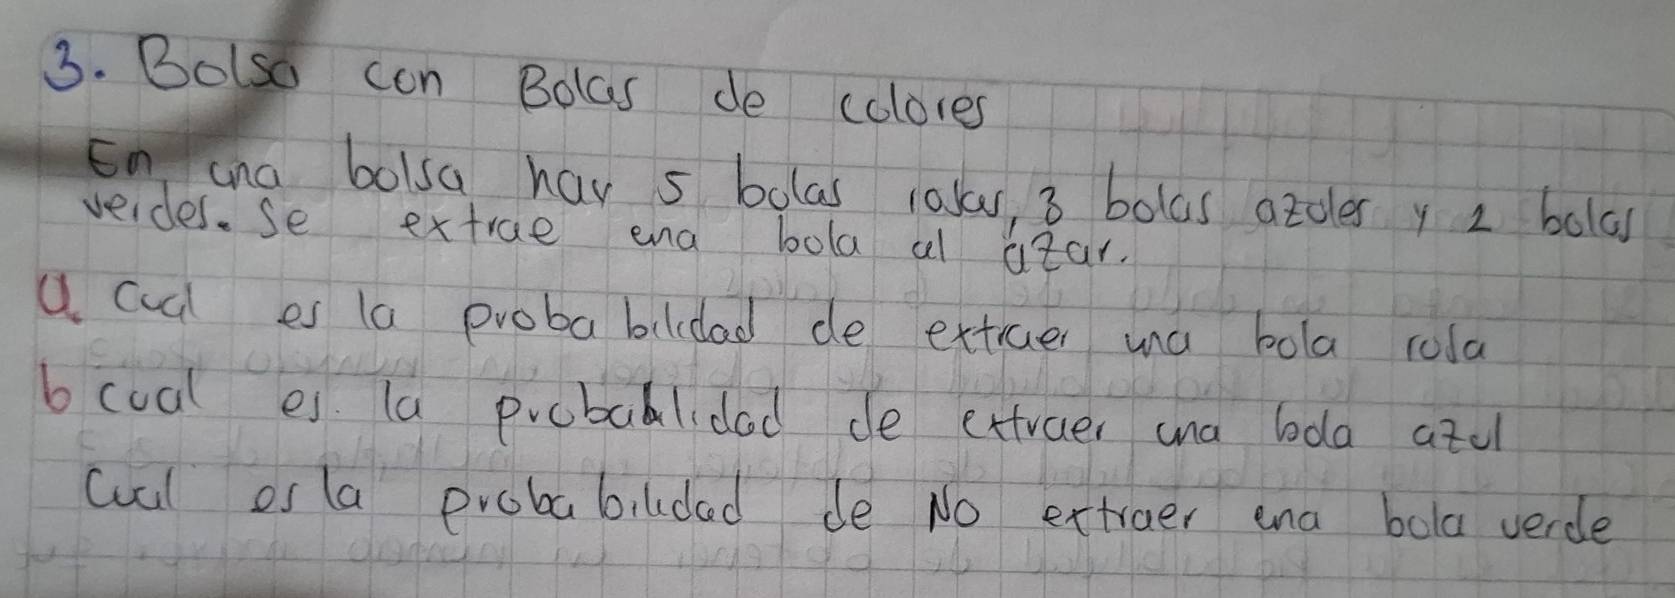 3. Bolsa con Bolas de colores
En una bolsa hay 5 bolas rojas, 3 bolas azules y 2 bolas
verdes. Se extrae una bola al azar.
a. Cual es la probabilidad de extraer una bola roja
b cual es. la probabilidad de extraer una bola azul
Cual es la probabilidad de No extraer una bola verde